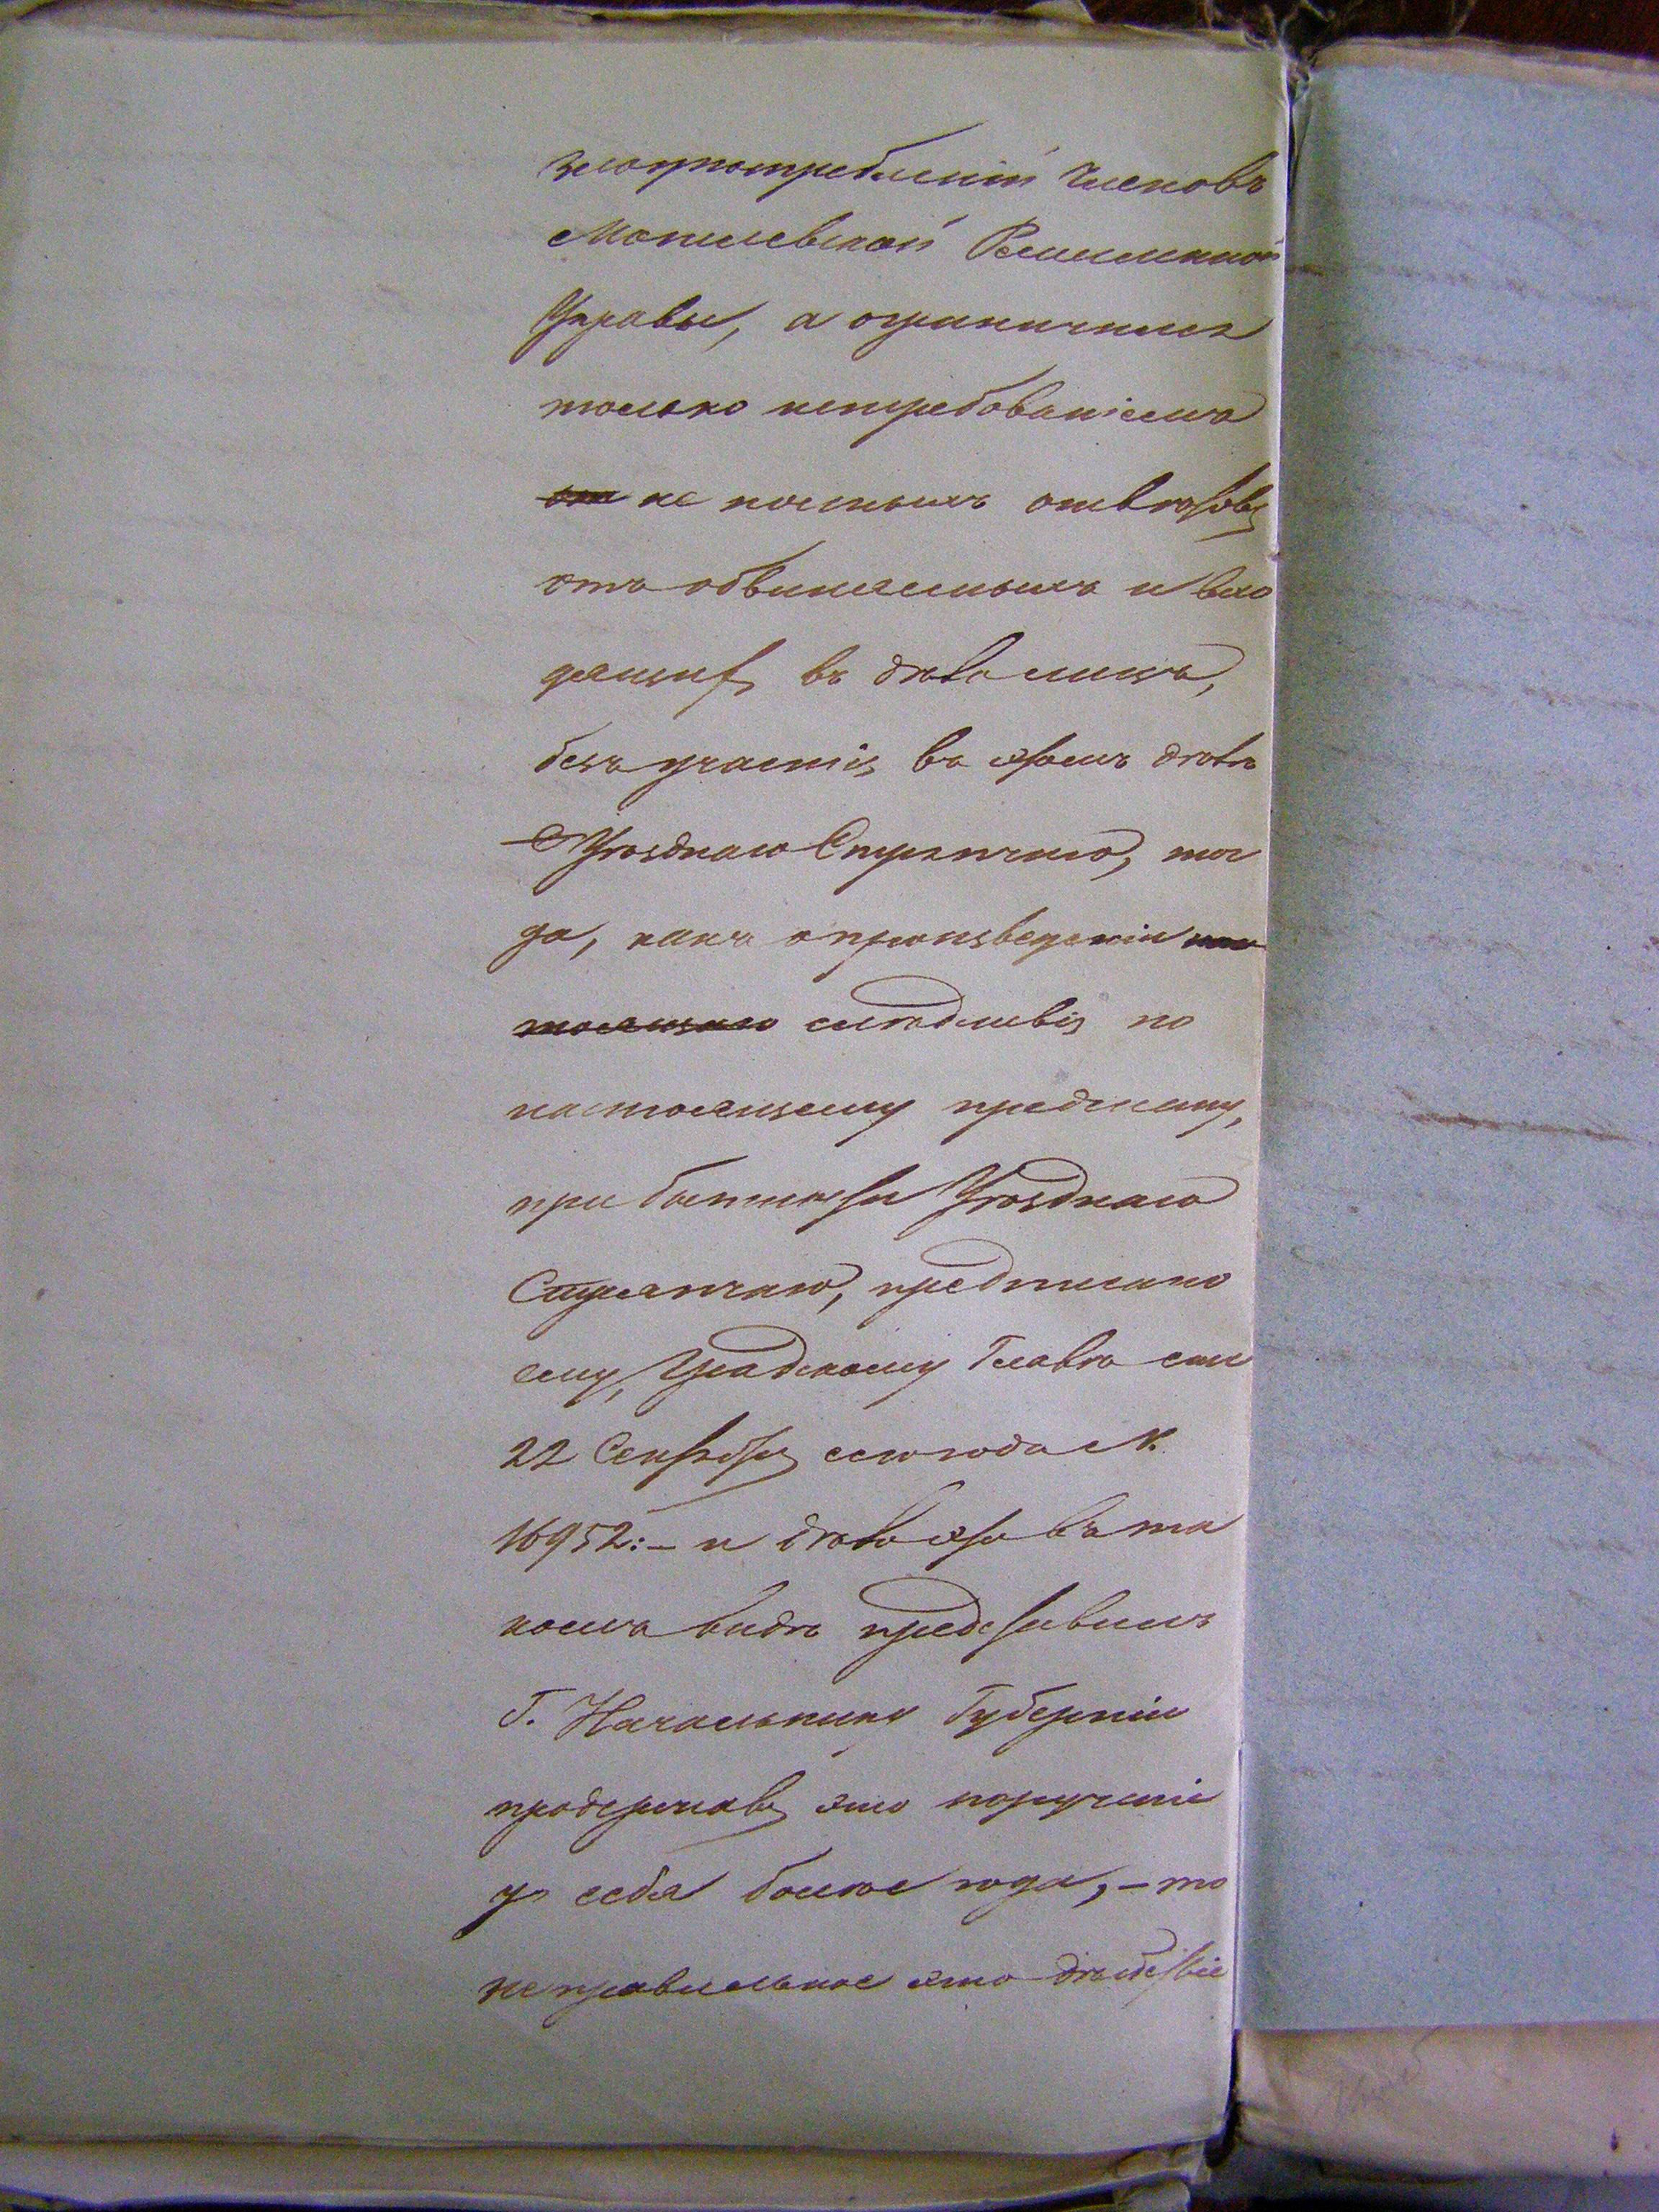 злоупотребленій Членовъ
Могилевской Ремесленной
Управы, а ограничился
только истребованіемъ
не полныхъ отвѣтовъ
отъ обвиняемыхъ и вхо
дящихъ въ дѣло лицъ,
безъ участія въ этомъ дѣлѣ
Уѣзднаго Стряпчаго, тог
да, какъ о произведеніи нас
тоящаго слѣдствія по
настоящему предмету,
при бытности Уѣзднаго
Стряпчаго, предписано
ему, Градскому Главѣ еще
22 Сентября сего года №
16952:- и дѣло это въ та
комъ видѣ представилъ
Г. Начальнику Губерніи
продержавъ это порученіе
у себя болѣе года,- то
неправильное это дѣйствіе